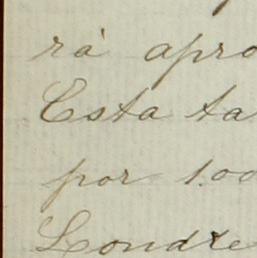 rá apro
Esta ta
por 1.00
Londre